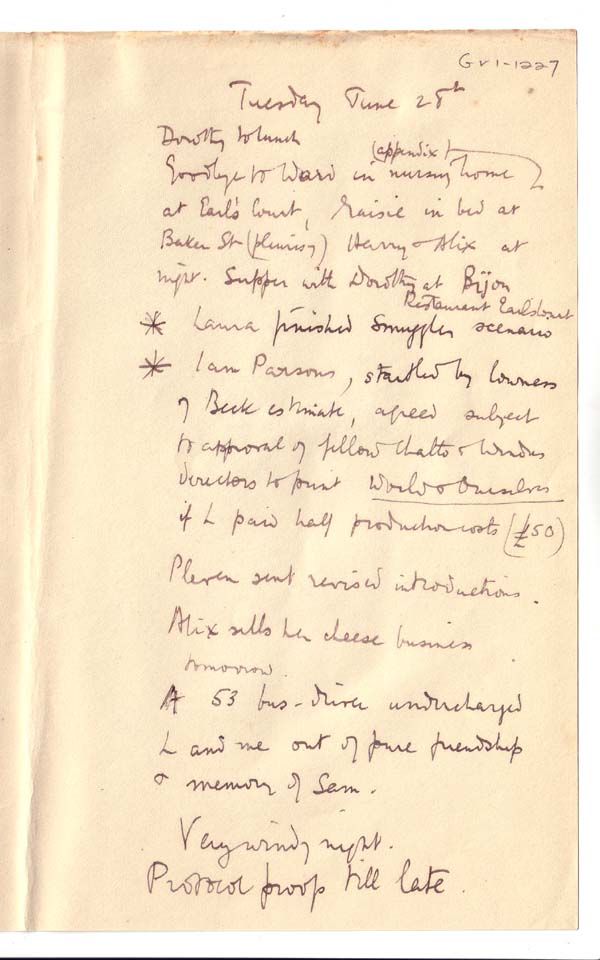 GV1-1227
Tuesday June 28th
Dorothy to lunch
(appendix)
Goodbye to Ward in nursing home
at Earl's Court, Maisie in bed at
Baker St (pleurisy) Harry & Alix at
night. Supper with Dorothy at Bijou
Restaurant Earls Court
* Laura finished Smuggler scenario
* Ian Parsons, startled by lowness
of Beck estimate, agreed subject
to approval of fellow Chatto & Windus
directors to print World & Ourselves
if L paid half production costs (£50)
sent revised introductions.
Alix sells her cheese business
tomorrow.
A 53 bus-driver undercharged
L and me out of pure friendship
& memory of Sam.
Very windy night.
Protocol proofs till late.